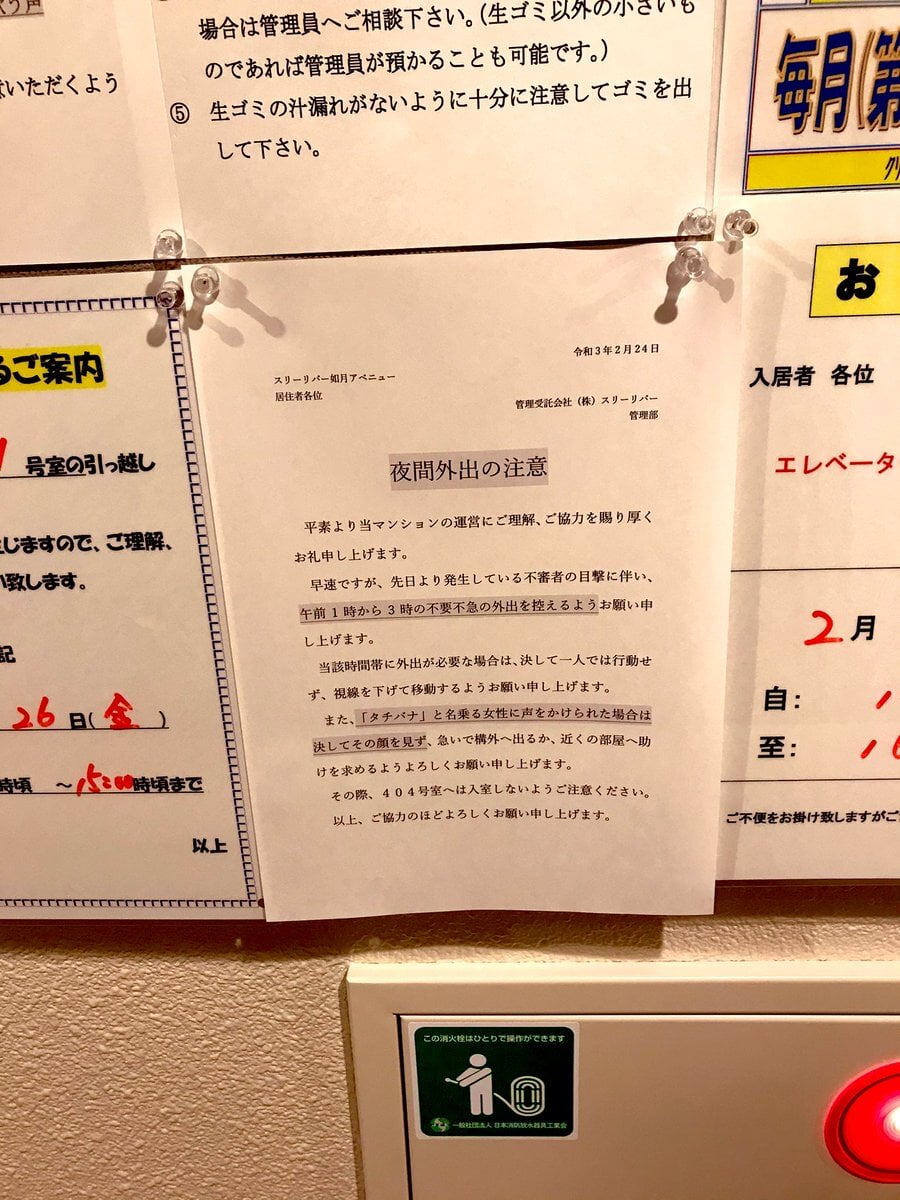 場合は管理員へご相談下さい。（生ゴミ以外の小さいも
のであれば管理員が預かることも可能です。）
⑤ 生ゴミの汁漏れがないように十分に注意してゴミを出
して下さい。
いただくよう
毎月(第
お
入居者 各位
エレベータ
2月
自：
至：
ご不便をお掛け致しますがご
るご案内
号室の引っ越し
生じますので、ご理解、
い致します。
記
26日(金)
時頃 ～15:00時頃まで
以上
令和３年２月２４日
スリーリバー如月アベニュー
居住者各位
管理受託会社（株）スリーリバー
管理部
夜間外出の注意
平素より当マンションの運営にご理解、ご協力を賜り厚く
お礼申し上げます。
早速ですが、先日より発生している不審者の目撃に伴い、
午前１時から３時の不要不急の外出を控えるようお願い申
し上げます。
当該時間帯に外出が必要な場合は、決して一人では行動せ
ず、視線を下げて移動するようお願い申し上げます。
また、「タチバナ」と名乗る女性に声をかけられた場合は
決してその顔を見ず、急いで構外へ出るか、近くの部屋へ助
けを求めるようよろしくお願い申し上げます。
その際、４０４号室へは入室しないようご注意ください。
以上、ご協力のほどよろしくお願い申し上げます。
この消火栓はひとりで操作ができます
一般社団法人 日本消防放水器具工業会